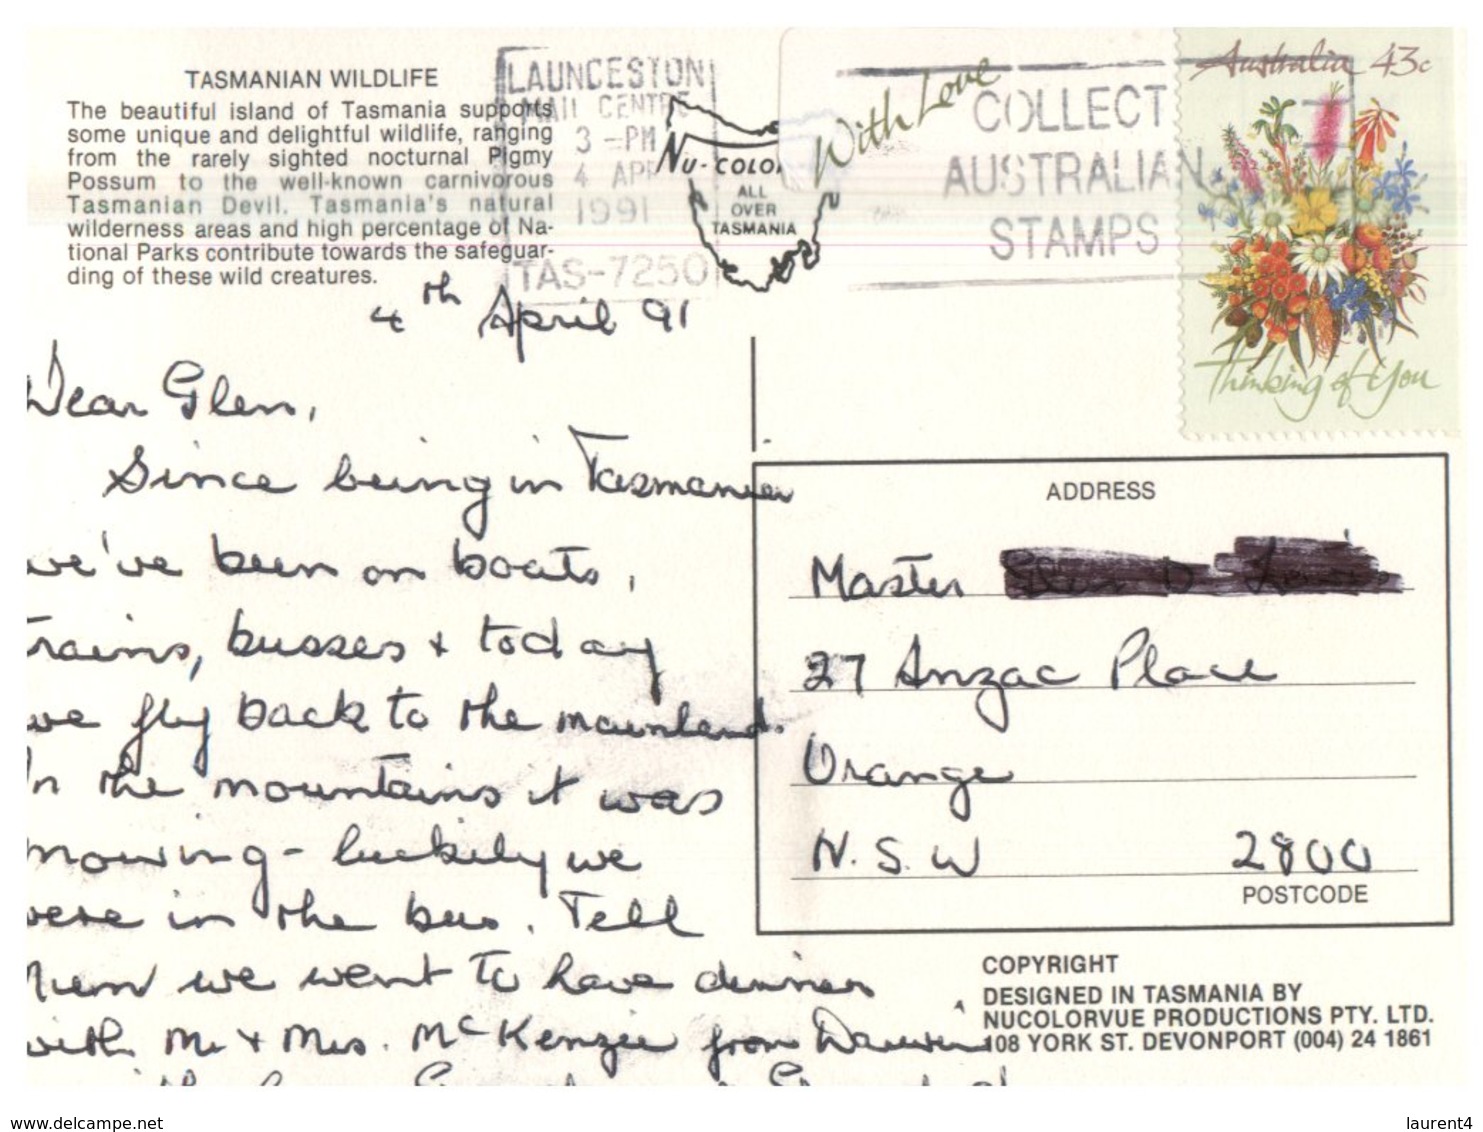 TASMANIAN WILDLIFE
The beautiful island of Tasmania supports
some unique and delightful wildlife, ranging
from the rarely sighted nocturnal Pigmy
Possum to the well-known carnivorous
Tasmanian Devil. Tasmania's natural
wilderness areas and high percentage of Na-
tional Parks contribute towards the safeguar-
ding of these wild creatures.
LAUNCESTON
MAIL CENTRE
3 -PM
4 APR
1991
TAS-7250
NU-COLOR
ALL
OVER
TASMANIA
With Love
COLLECT
AUSTRALIAN
STAMPS
Australia 43c
Thinking of You
4th April 91
Dear Glen,
Since being in Tasmania
we've been on boats,
trains, busses + today
we fly back to the mainland.
In the mountains it was
snowing - luckily we
were in the bus. Tell
Mum we went to have dinner
with Mr + Mrs. McKenzie from Darwin
ADDRESS
Master
27 Anzac Place
Orange
N.S.W 2800
POSTCODE
COPYRIGHT
DESIGNED IN TASMANIA BY
NUCOLORVUE PRODUCTIONS PTY. LTD.
108 YORK ST. DEVONPORT (004) 24 1861
www.delcampe.net
laurent4